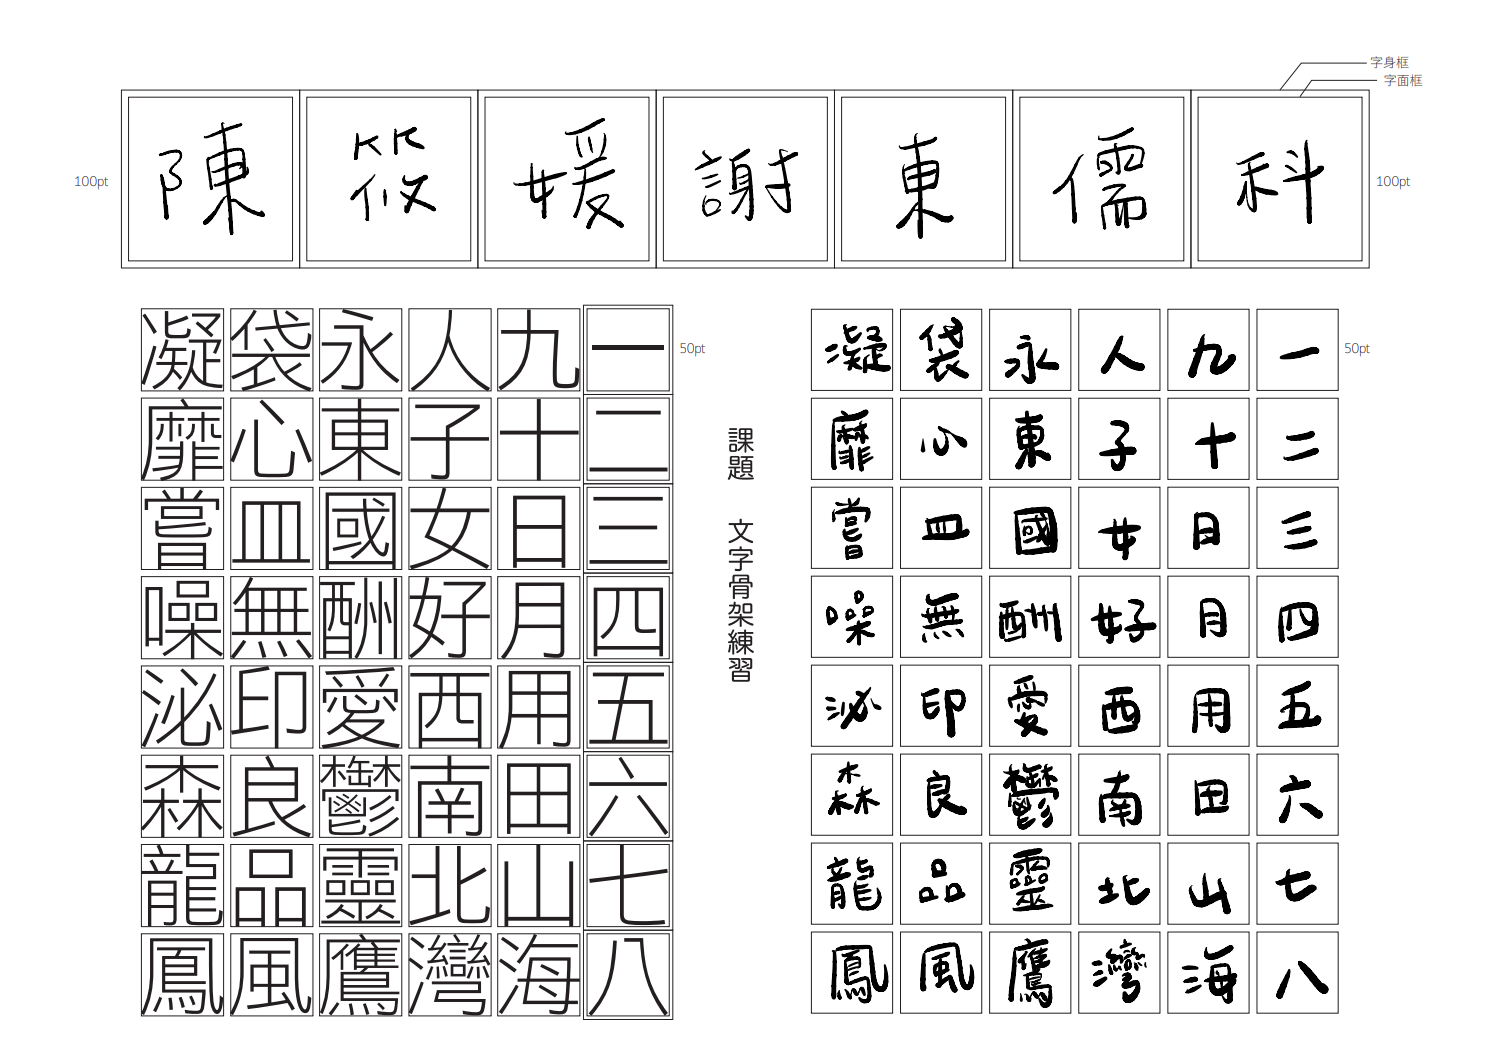 字身框
字面框
100pt
陳筱媛謝東儒科
100pt
凝袋永人九一
50pt
靡心東子十二
嘗皿國女日三
噪無酬好月四
泌印愛西用五
森良鬱南田六
龍品靈北山七
鳳風鷹灣海八
課題 文字骨架練習
凝袋永人九一
50pt
靡心東子十二
嘗皿國女日三
噪無酬好月四
泌印愛西用五
森良鬱南田六
龍品靈北山七
鳳風鷹灣海八